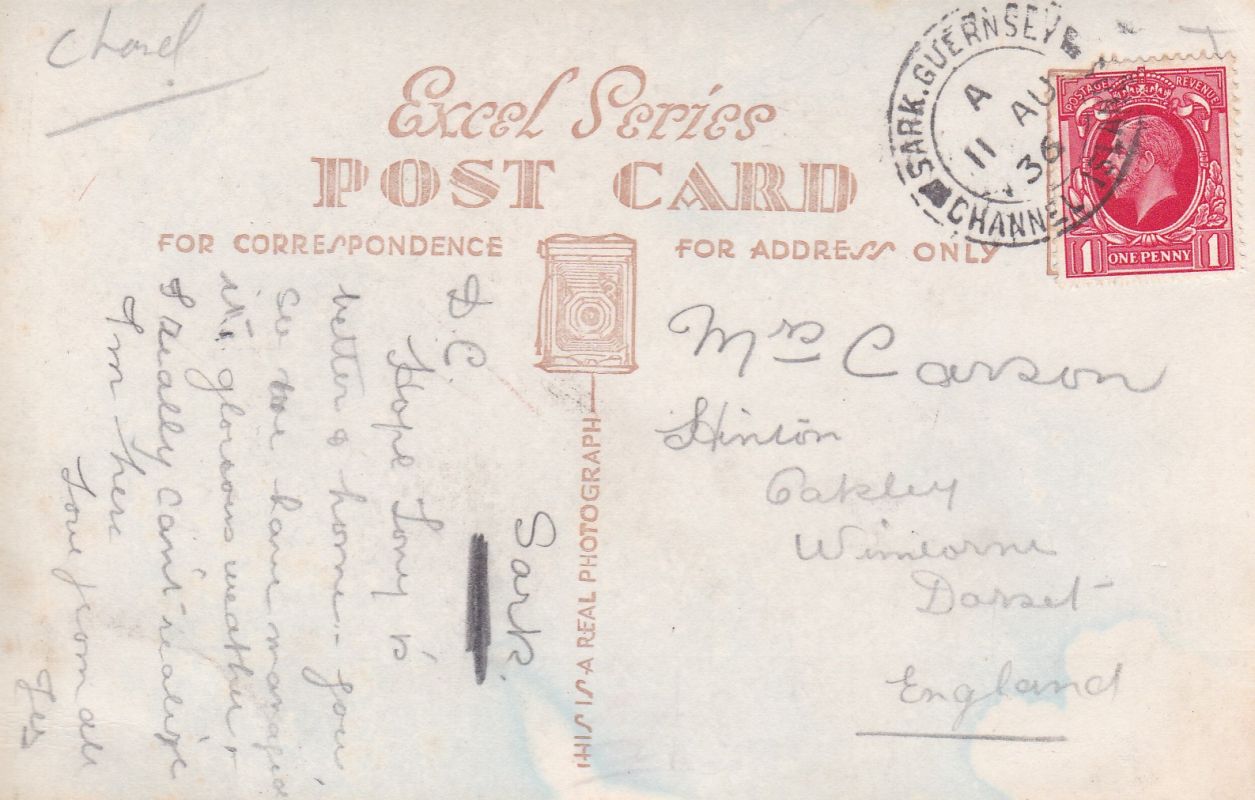 Chard
Excel Series
POST CARD
FOR CORRESPONDENCE
FOR ADDRESS ONLY
THIS IS A REAL PHOTOGRAPH
SARK. GUERNSEY
A
11 AU
36
CHANNEL ISLANDS
POSTAGE REVENUE
1 ONE PENNY 1
Sark.
D.C.
Hope Tony is
better & home. - you
see we have managed
it, glorious weather &
I really can't realize
I'm here
Love from all
Mrs Carson
Hinton
Oakley
Wimborne
Dorset
England